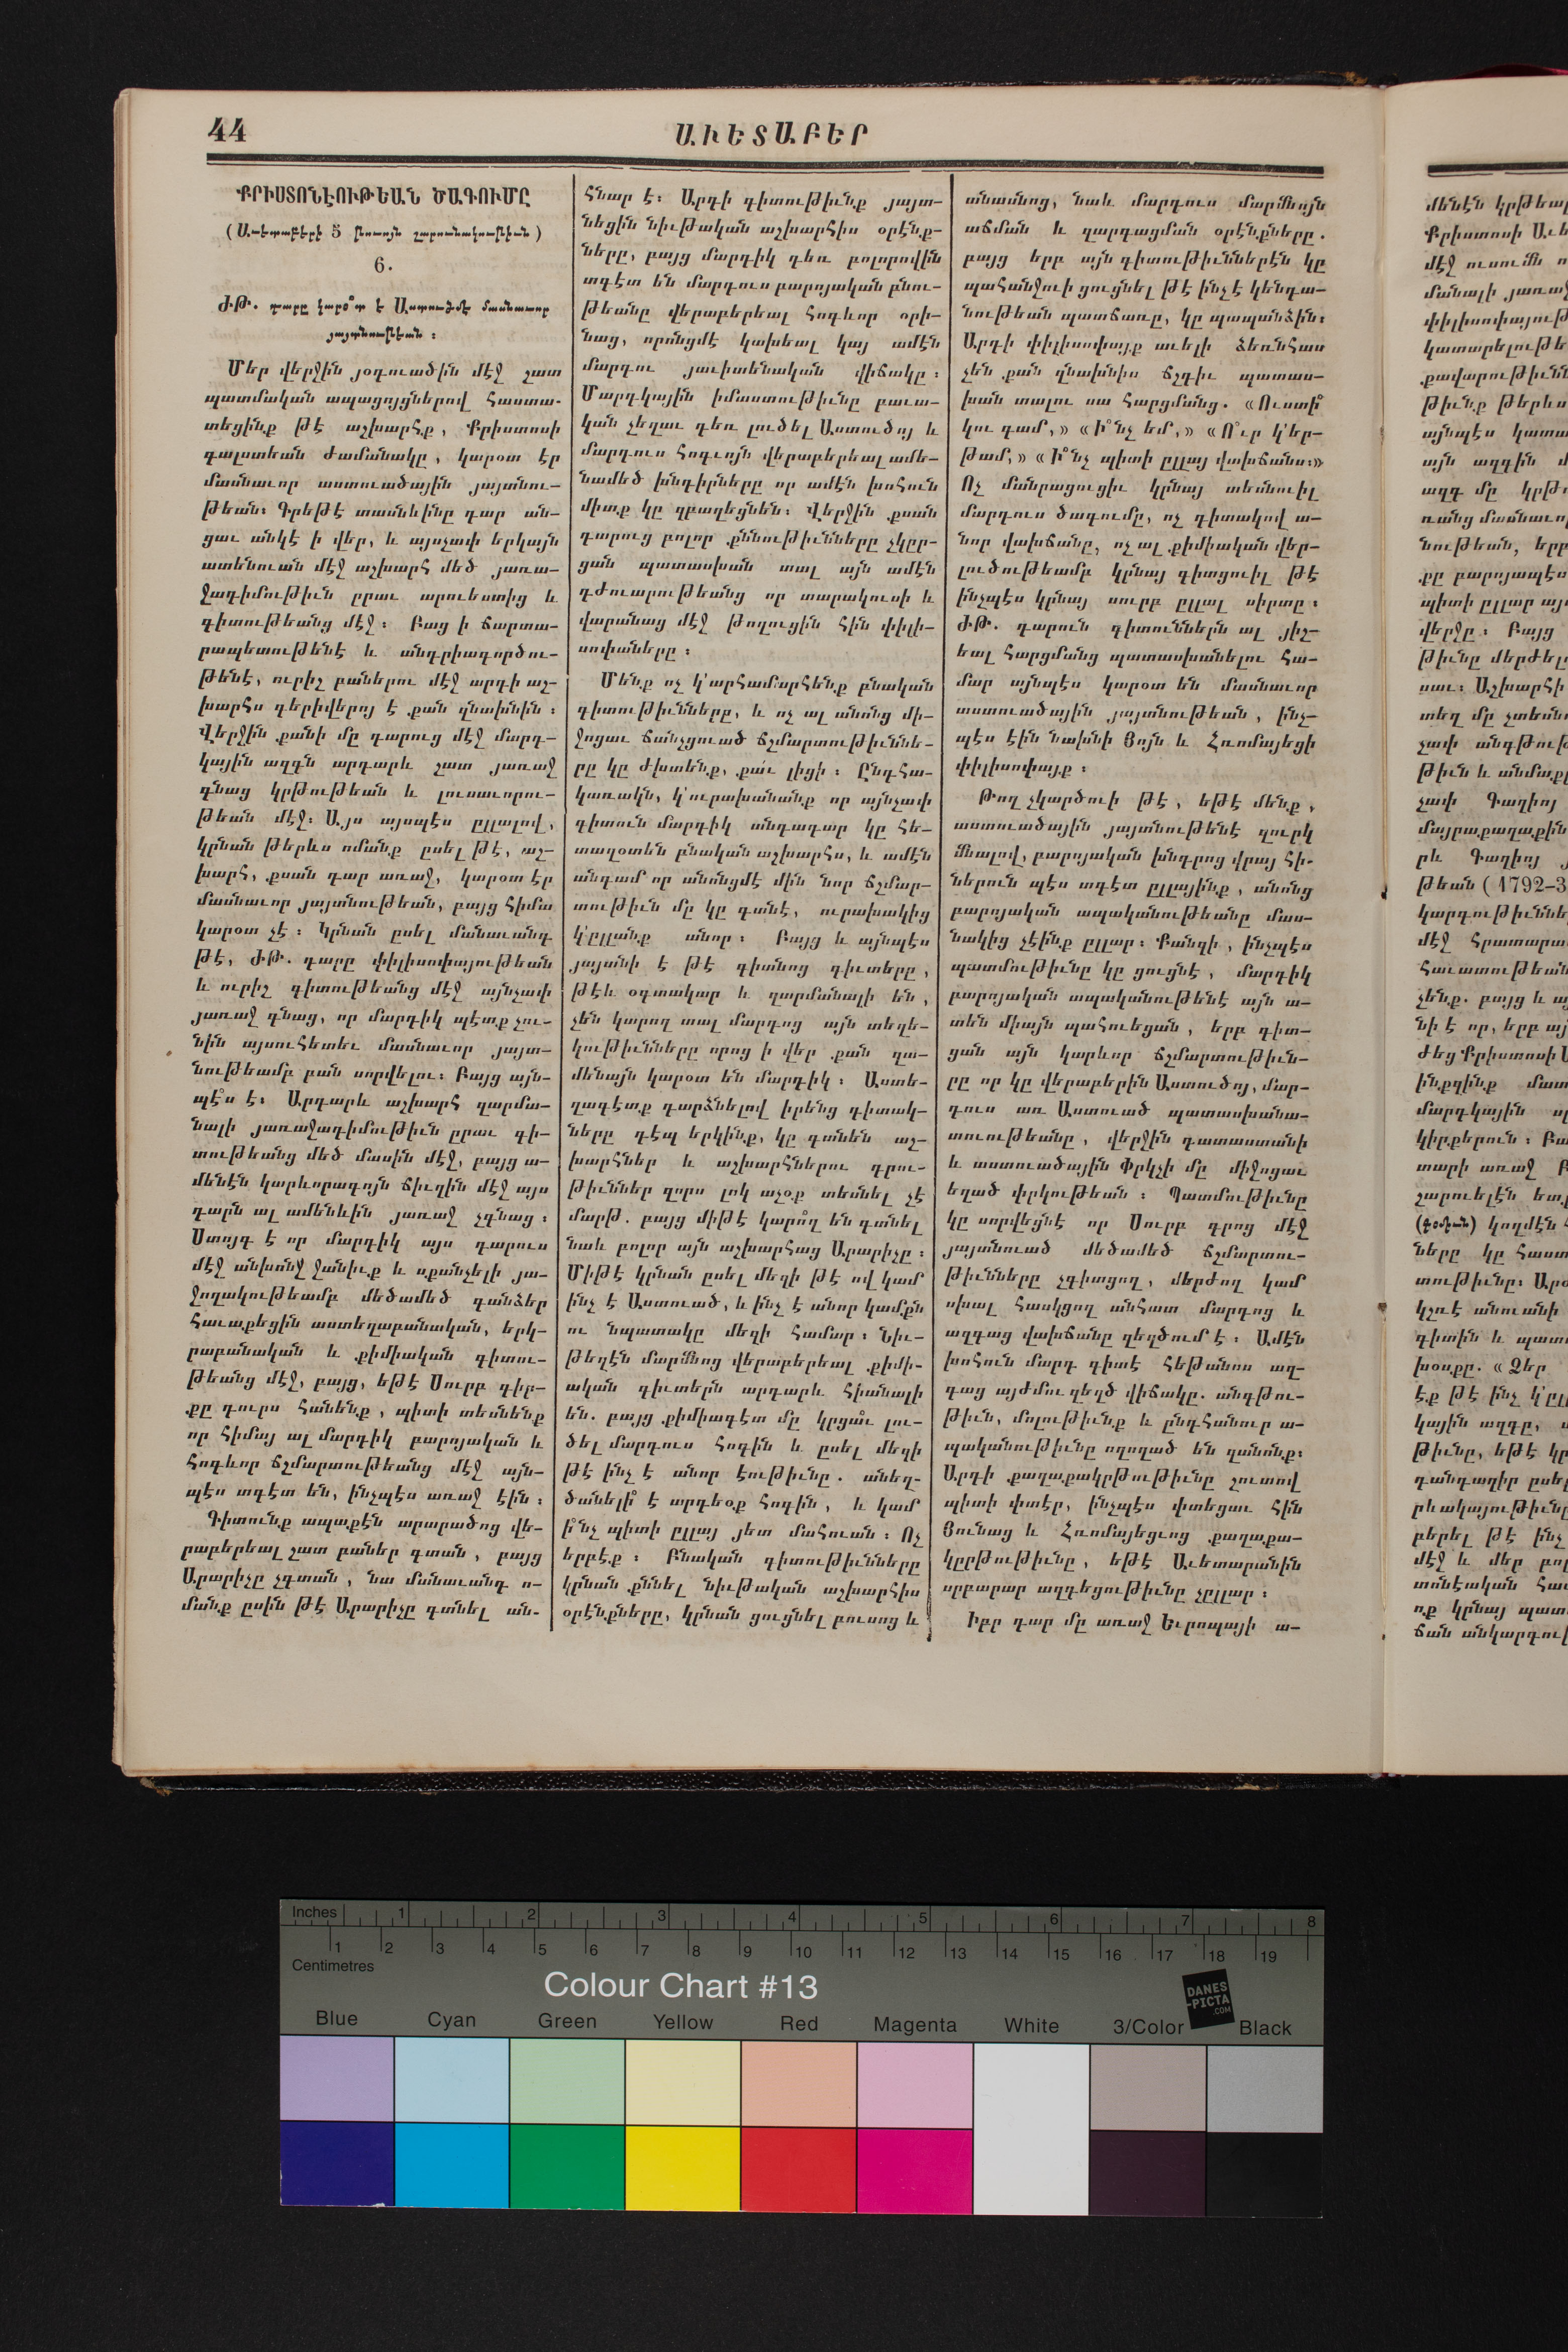 44
ԱՒԵՏԱԲԵՐ
ՔՐԻՍՏՈՆԷՈՒԹԵԱՆ ԾԱԳՈՒՄԸ
(Աւետաբերի 5 թուոյն շարունակութիւն)
6.
ԺԹ. դարը կարօ՞տ է Աստուծմէ մասնաւոր
յայտնութեան ։
Մեր վերջին յօդուածին մէջ շատ
պատմական ապացոյցներով հաստա-
տեցինք թէ աշխարհք, Քրիստոսի
գալստեան ժամանակը, կարօտ էր
մասնաւոր աստուածային յայտնու-
թեան։ Գրեթէ տասնևինը դար ան-
ցաւ անկէ ի վեր, և այսչափ երկայն
ատենուան մէջ աշխարհ մեծ յառա-
ջադիմութիւն ըրաւ արուեստից և
գիտութեանց մէջ։ Բաց ի ճարտա-
րապետութենէ և անդրիագործու-
թենէ, ուրիշ բաներու մէջ արդի աշ-
խարհս գերիվերոյ է քան զնախնին ։
Վերջին քանի մը դարուց մէջ մարդ-
կային ազգն արդարև շատ յառաջ
գնաց կրթութեան և լուսաւորու-
թեան մէջ։ Այս այսպէս ըլլալով,
կրնան թերևս ոմանք ըսել թէ, աշ-
խարհ, քսան դար առաջ, կարօտ էր
մասնաւոր յայտնութեան, բայց հիմա
կարօտ չէ ։ Կրնան ըսել մանաւանդ
թէ, ԺԹ. դարը փիլիսոփայութեան
և ուրիշ գիտութեանց մէջ այնչափ
յառաջ գնաց, որ մարդիկ պէտք չու-
նին այսուհետեւ մասնաւոր յայտ-
նութեամբ բան սորվելու։ Բայց այն-
պէ՞ս է։ Արդարև աշխարհ զարմա-
նալի յառաջադիմութիւն ըրաւ գի-
տութեանց մեծ մասին մէջ, բայց ա-
մենէն կարևորագոյն ճիւղին մէջ այս
դարն ալ ամենևին յառաջ չգնաց ։
Ստոյգ է որ մարդիկ այս դարուս
մէջ անխոնջ ջանիւք և սքանչելի յա-
ջողակութեամբ մեծամեծ գանձեր
հաւաքեցին աստեղաբանական, երկ-
րաբանական և քիմիական գիտու-
թեանց մէջ, բայց, եթէ Սուրբ գիր-
քը դուրս հանենք, պիտի տեսնենք
որ հիմայ ալ մարդիկ բարոյական և
հոգևոր ճշմարտութեանց մէջ այն-
պէս տգէտ են, ինչպէս առաջ էին ։
Գիտունք ապաքէն արարածոց վե-
րաբերեալ շատ բաներ գտան, բայց
Արարիչը չգտան, նա մանաւանդ ո-
մանք ըսին թէ Արարիչը գտնել ան-
հնար է։ Արդի գիտութիւնք յայտ-
նեցին նիւթական աշխարհիս օրէնք-
ները, բայց մարդիկ դեռ բոլորովին
տգէտ են մարդուս բարոյական բնու-
թեանը վերաբերեալ հոգևոր օրի-
նաց, որոնցմէ կախեալ կայ ամէն
մարդու յաւիտենական վիճակը ։
Մարդկային իմաստութիւնը բաւա-
կան չեղաւ դեռ լուծել Աստուծոյ և
մարդուս հոգւոյն վերաբերեալ ամե-
նամեծ խնդիրները որ ամէն խոհուն
միտք կը զբաղեցնեն։ Վերջին քսան
դարուց բոլոր քննութիւնները չկըր-
ցան պատասխան տալ այն ամէն
դժուարութեանց որ տարակուսի և
վարանաց մէջ թողուցին հին փիլի-
սոփաները ։
Մենք ոչ կ'արհամարհենք բնական
գիտութիւնները, և ոչ ալ անոնց մի-
ջոցաւ ճանչցուած ճշմարտութիւննե-
րը կը ժխտենք, քա՛ւ լիցի ։ Ընդհա-
կառակն, կ'ուրախանանք որ այնչափ
գիտուն մարդիկ անդադար կը հե-
տազօտեն բնական աշխարհս, և ամէն
անգամ որ անոնցմէ մին նոր ճշմար-
տութիւն մը կը գտնէ, ուրախակից
կ'ըլլանք անոր ։ Բայց և այնպէս
յայտնի է թէ գիտնոց գիւտերը,
թէև օգտակար և զարմանալի են,
չեն կարող տալ մարդոց այն տեղե-
կութիւնները որոց ի վեր քան զա-
մենայն կարօտ են մարդիկ ։ Աստե-
ղագէտք դարձնելով իրենց դիտակ-
ները դէպ երկինք, կը գտնեն աշ-
խարհներ և աշխարհներու դրու-
թիւններ զորս լոկ աչօք տեսնել չէ
մարթ. բայց միթէ կարո՞ղ են գտնել
նաև բոլոր այն աշխարհաց Արարիչը ։
Միթէ կրնան ըսել մեզի թէ ով կամ
ինչ է Աստուած, և ինչ է անոր կամքն
ու նպատակը մեզի համար ։ Նիւ-
թեղէն մարմնոց վերաբերեալ քիմի-
ական գիւտերն արդարև հիանալի
են. բայց քիմիագէտ մը կրցա՞ւ լու-
ծել մարդուս հոգին և ըսել մեզի
թէ ինչ է անոր էութիւնը . անեղ-
ծանելի՞ է արդեօք հոգին, և կամ
ի՞նչ պիտի ըլլայ յետ մահուան ։ Ոչ
երբէք ։ Բնական գիտութիւնները
կրնան քննել նիւթական աշխարհիս
օրէնքները, կրնան ցուցնել բուսոց և
անասնոց, նաև մարդուս մարմնոյն
աճման և զարգացման օրէնքները .
բայց երբ այն գիտութիւններէն կը
պահանջուի ցուցնել թէ ինչ է կենդա-
նութեան պատճառը, կը պապանձին։
Արդի փիլիսոփայք աւելի ձեռնհաս
չեն քան զնախնիս ճշդիւ պատաս-
խան տալու սա հարցմանց. «Ուստի՞
կու գամ,» «Ի՞նչ եմ,» «Ո՞ւր կ'եր-
թամ,» «Ի՞նչ պիտի ըլլայ վախճանս։»
Ոչ մանրացուցիւ կրնայ տեսնուիլ
մարդուս ծագումը, ոչ դիտակով ա-
նոր վախճանը, ոչ ալ քիմիական վեր-
լուծութեամբ կրնայ գիտցուիլ թէ
ինչպէս կրնայ սուրբ ըլլալ սիրտը ։
ԺԹ. դարուն գիտուններն ալ յիշ-
եալ հարցմանց պատասխանելու հա-
մար այնպէս կարօտ են մասնաւոր
աստուածային յայտնութեան, ինչ-
պէս էին նախնի Յոյն և Հռոմայեցի
փիլիսոփայք ։
Թող չկարծուի թէ, եթէ մենք,
աստուածային յայտնութենէ զուրկ
մնալով, բարոյական խնդրոց վրայ հի-
ներուն պէս տգէտ ըլլայինք, անոնց
բարոյական ապականութեանը մաս-
նակից չէինք ըլլար։ Քանզի, ինչպէս
պատմութիւնը կը ցուցնէ, մարդիկ
բարոյական ապականութենէ այն ա-
տեն միայն պահուեցան, երբ գիտ-
ցան այն կարևոր ճշմարտութիւն-
րը որ կը վերաբերին Աստուծոյ, մար-
դուս առ Աստուած պատասխանա-
տուութեանը, վերջին դատաստանի
և աստուածային Փրկչի մը միջոցաւ
եղած փրկութեան ։ Պատմութիւնը
կը սորվեցնէ որ Սուրբ գրոց մէջ
յայտնուած մեծամեծ ճշմարտու-
թիւնները չգիտցող, մերժող կամ
սխալ հասկցող անհատ մարդոց և
ազգաց վախճանը զեղծում է ։ Ամէն
խոհուն մարդ գիտէ հեթանոս ազ-
գաց այժմու զեղծ վիճակը. անգթու-
թիւն, մոլութիւնք և ընդհանուր ա-
պականութիւնը ողողած են զանոնք։
Արդի քաղաքակրթութիւնը շուտով
պիտի փտէր, ինչպէս փտեցաւ հին
Յունաց և Հռոմայեցւոց քաղաքա-
կըրթութիւնը, եթէ Աւետարանին
սրբարար ազդեցութիւնը չըլլար ։
Իբր դար մը առաջ Եւրոպայի ա-
Inches 1 2 3 4 5 6 7 8
1 2 3 4 5 6 7 8 9 10 11 12 13 14 15 16 17 18 19
Centimetres
Colour Chart #13
DANES
-PICTA
.COM
Blue Cyan Green Yellow Red Magenta White 3/Color Black